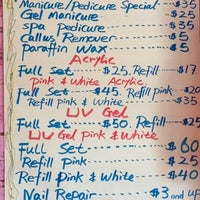 Manicure/Pedicure Special - $35
Gel Manicure - $25
Spa Pedicure - $35
Callus Remover - $5
Paraffin Wax - $5
Acrylic
Full Set - $25, Refill - $17
Pink & White Acrylic
Full Set - $45. Refill pink $28
Refill pink & White - $35
UV Gel
Full Set - $50. Refill - $25
UV Gel pink & White
Full Set - $60
Refill pink - $25
Refill pink & White - $40
Nail Repair - $3 and up